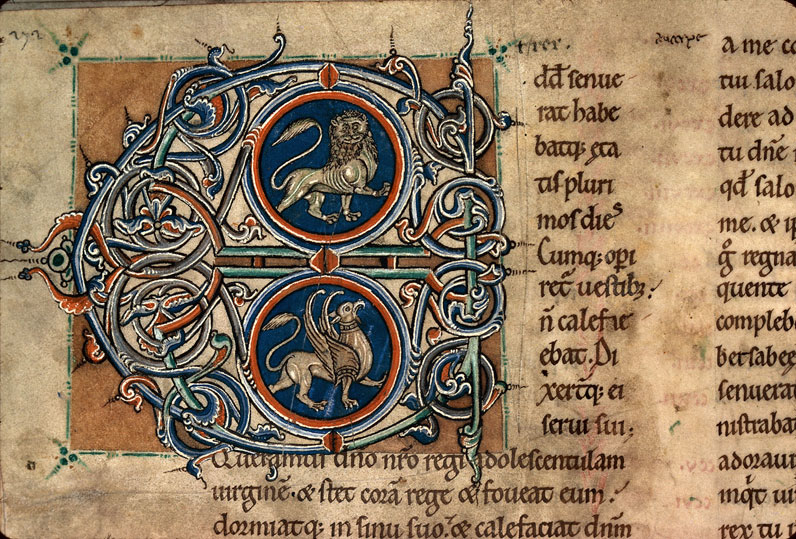 dd̄ senue
rat habe
batq; ęta
tis pluri
mos dies
Cumq; opi
ret̄ uestib;
n̄ calefie
ebat. Di
xert̄q; ei
serui sui;
Queramus dn̄o nr̄o regi adolescentulam
uirginē. & stet corā rege & foueat eum.
dormiatq; in sinu suo. & calefaciat dn̄m
a me co
tui salo
dere ad
tu dn̄e
qd̄ salo
me. & ip
regna
quente
compleb
bersabeę
senuerat
nistrabat
adoraut
inqt̄ ui
rex tu